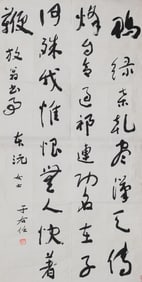 鴨綠桑乾盡漢天傳
烽自合過祁連功名在子
何殊我惟恨無人快著
鞭
放翁書事
東沅女士
于右任